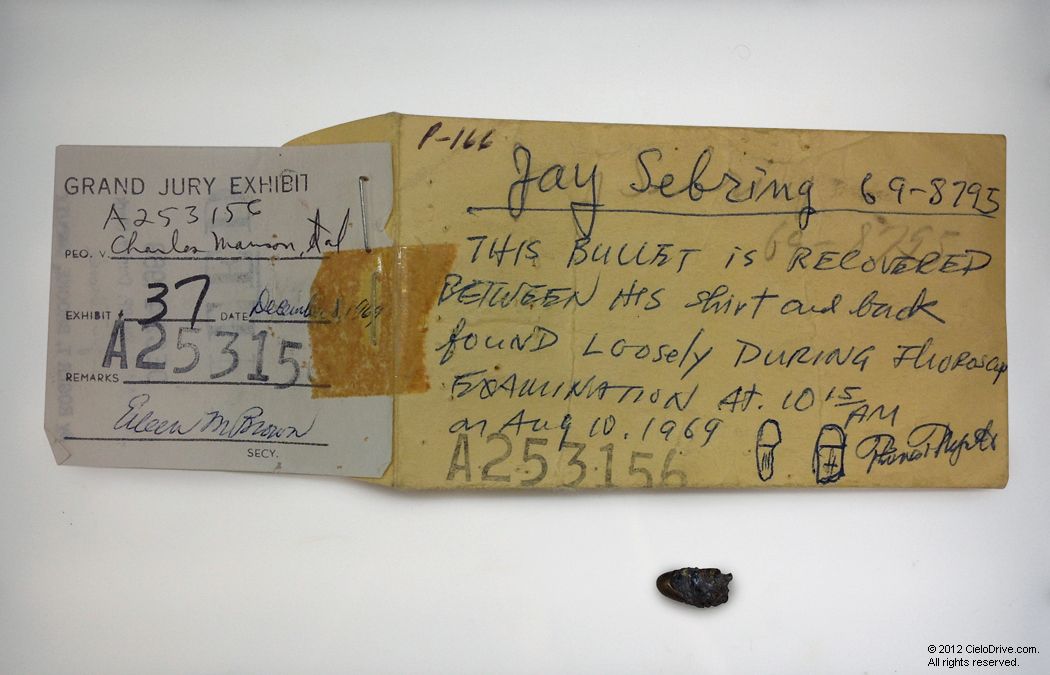 GRAND JURY EXHIBIT
A253156
PEO. V. Charles Manson, et al
EXHIBIT 37 DATE December 1969
A25315
REMARKS
Eileen M Brown
SECY.
P-166
Jay Sebring 69-8795
69-8795
THIS BULLET is RECOVERED
BETWEEN HIS shirt and back
FOUND LOOSELY DURING
EXAMINATION At. 10 15/AM
on Aug 10. 1969
A253156
© 2012 CieloDrive.com.
All rights reserved.